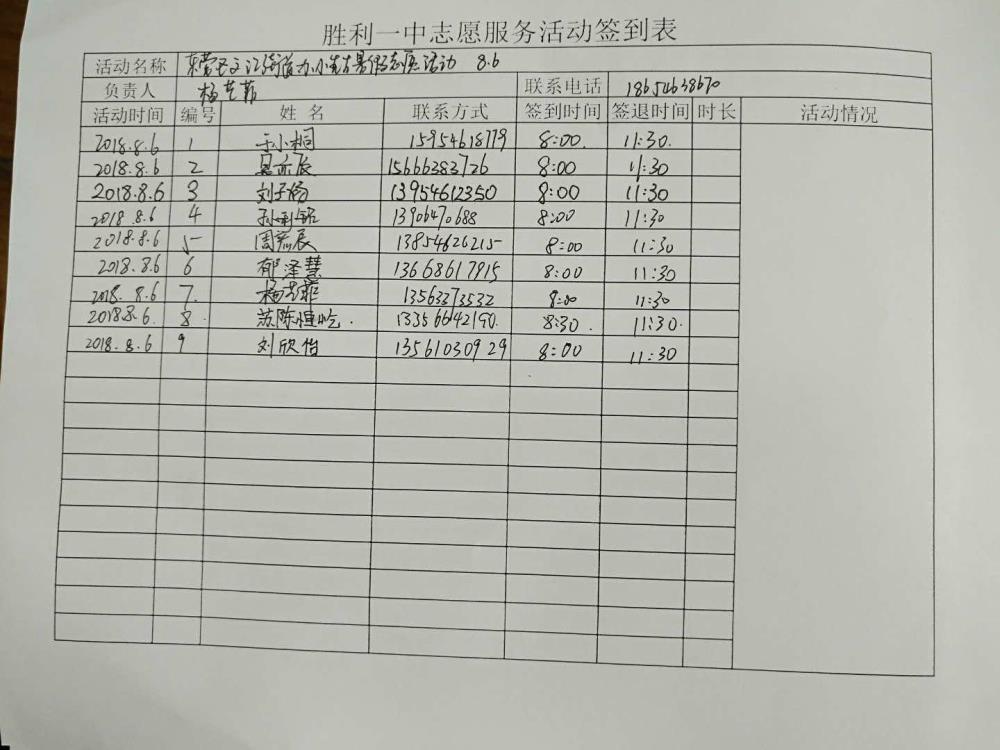 胜利一中志愿服务活动签到表
活动名称 暑假志愿活动 8.6
负责人 杨艺菲 联系电话 18654638670
活动时间 编号 姓名 联系方式 签到时间 签退时间 时长 活动情况
2018.8.6 1 于小桐 15954618779 8:00. 11:30.
2018.8.6 2 辰 15666383726 8:00 11:30
2018.8.6 3 刘子杨 13954612350 8:00 11:30
2018.8.6 4 孙 铭 13906470688 8:00 11:30
2018.8.6 5 周 辰 13854626215 8:00 11:30
2018.8.6 6 郁泽慧 13668617915 8:00 11:30
2018.8.6 7. 杨艺菲 13563373532 8:00 11:30
2018.8.6. 8. 苏陈恒屹. 13356642190. 8:30. 11:30.
2018.8.6 9 刘欣怡 13561030929 8:00 11:30